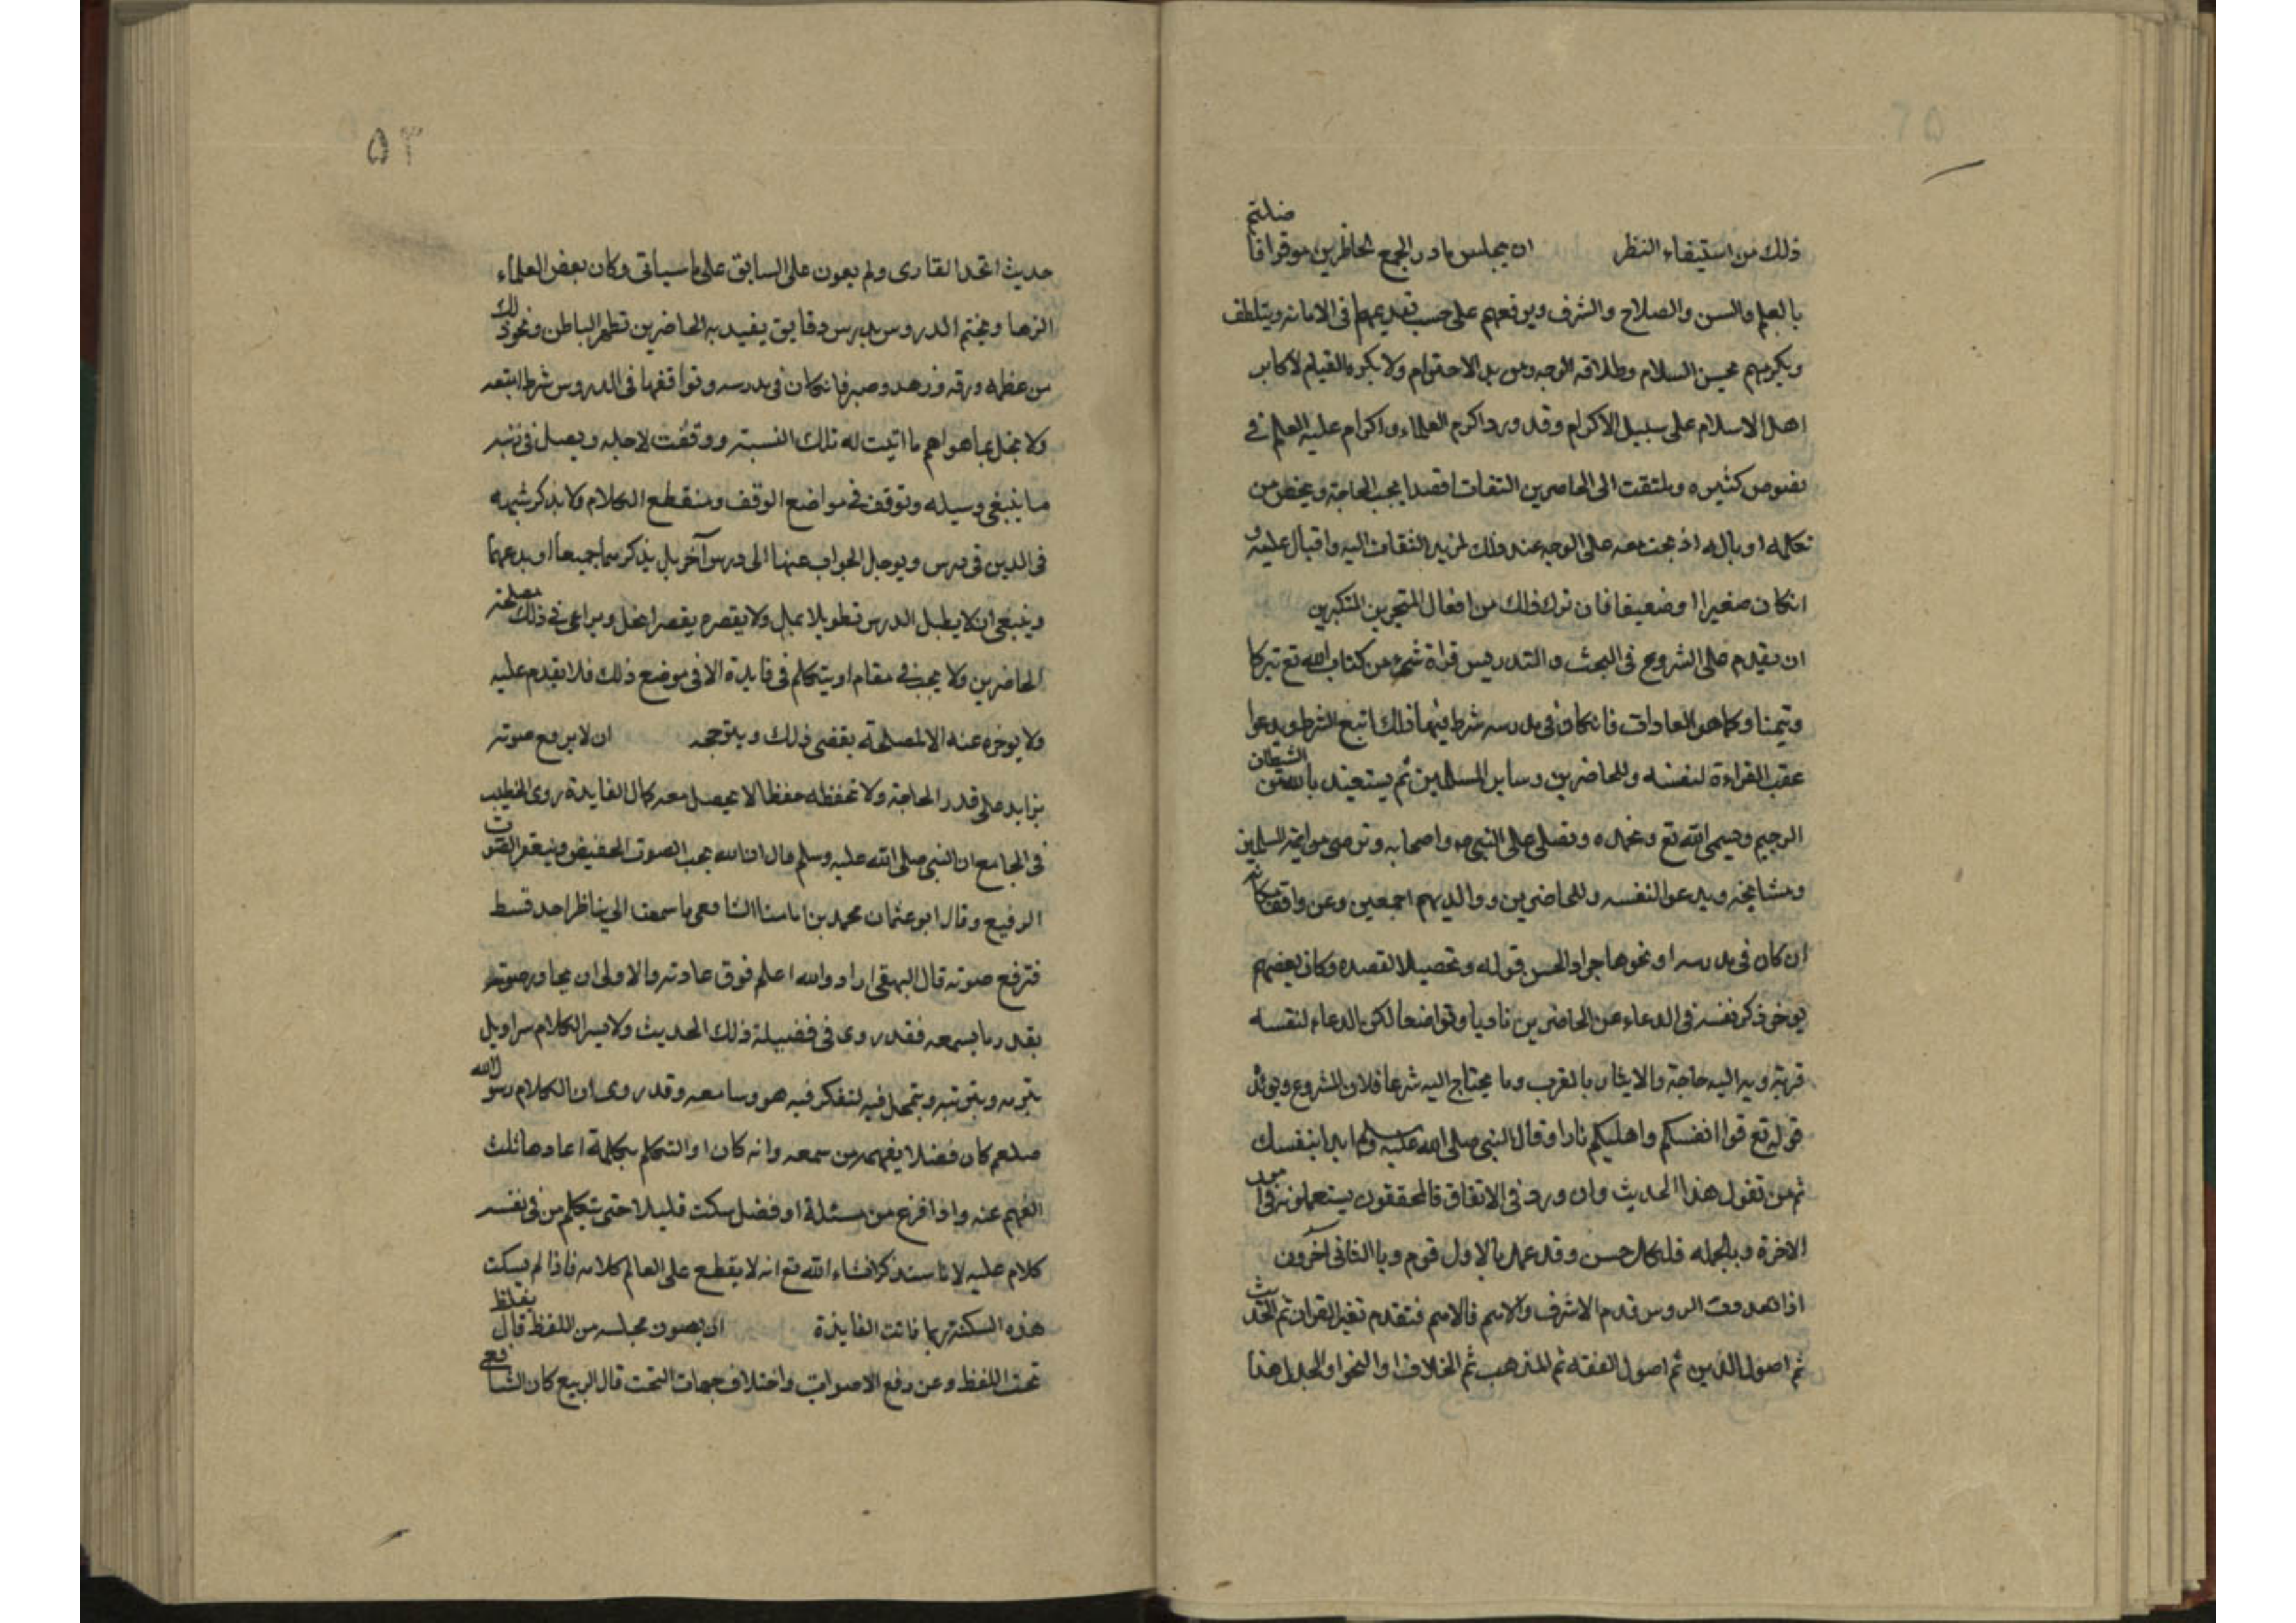 ذلك من استيفاء النظر ان يجلس بادر الجمع الحاظرين موقرا فاضلتم
بالعلم والسن والصلاح والشرف ويوقعهم على حسب تقديمهم فى الامانه ويتلطف
ويكرمهم بحسن السلام وطلاقه الوجه ومن يد الاحترام ولا يكره القيام لاكابر
اهل الاسلام على سبيل الاكرام وقد ورد اكرم العلماء واكرام عليه العلم فى
نصوص كثيره ويلتقت الى الحاصرين التفاتا قصدا بحب الحاجة ويخص من
تكلمه او باله اذ بحث معه على الوجه عند ذلك لمزيد التفات اليه واقبال عليه و
انكان صغيرا او ضعيفا فان ترك ذلك من افعال المتجرين المتكبرين
ان يقدم على الشروع فى البحث والتدريس قراة شئ من كتاب الله تع تبركا
وتيمنا وكما هو العادات فانكان فى مدرسه شرط فيها ذلك اتبع الشرط ويدعوا
عقب القراءة لنفسه وللحاضرين وسابر المسلمين ثم يستعيذ بالله من الشيطان
الرجيم ويسمى الله تع ونحمده ونصلى على النبى ص واصحابه وترضى من ايمة المسلمين
ومشايخه ويدعو النفسه وللحاضرين ووالديهم اجمعين وعن واقف مكانه
ان كان فى مدرسه او نحوها جرا دالحسن قوله وتحصيلا لقصده وكان بعضهم
يوخر ذكر نفسه فى الدعاء عن الحاضرين تاديبا وتواضعا لكن الدعاء لنفسه
قربة وبه اليه حاجة والايثار بالقرب وما يحتاج اليه شرعا فلان المشروع ويوئد
قوله تع قوا انفسكم واهليكم نارا وقال النبى صلى الله عليه وسلم ابدا بنفسك
ثم من تعول هذا الحديث وان ورد فى الاتفاق فالمحققون يستعملونه فى امور
الاخرة وبالجمله فلكل حسن وقد عمل بالاول قوم وبا الثانى آخرون
اذا تعددت الدروس قدم الاشرف والاهم فالاهم فتقدم تفير القران ثم الحديث
ثم اصول الدين ثم اصول الفقه ثم المذهب ثم الخلاف او النحو او الجدل هذا
۵۳
حديث اتحد القارى ولم يعون على السابق على ما سياتى وكان بعض العلماء
الزها ويختم الدروس بدرس دقايق يفيد به الحاضرين تطهر الباطن ونحو ذلك
من عظه ورقه وزهد وصبر فانكان فى مدرسه وتواقفها فى الدروس شرط اتبعه
ولا يخل بما هو اهم ما اتيت له تلك النسبة ووقفت لاجله ويصل فى
ما ينبغى وسيله وتوقف فى مواضع الوقف ومنقطع الكلام ولا يذكر شبهه
فى الدين فى درس ويوجل الجواب عنها الى درس آخر بل يذكرهما جميعا او يدعهما
وينبغى ان لا يطيل الدرس تطويلا يمل ولا يقصره يقصرا يخل ويراعى فى ذلك مصلحة
الحاضرين ولا يبحث فى مقام او يتكلم فى فايدة الا فى موضع ذلك فلا يقدم عليه
ولا يوخره عنه الا لمصلحة يقضى ذلك ويتوجحه ان لا يرفع صوته
بزايد على قدر الحاجة ولا تحفظه حفظا لا يحصل معه كمال الفايدة روى الخطيب
فى الجامع ان النبى صلى الله عليه وسلم قال ان الله يحب الصوت الحفيض ويبغض الصوت
الرفيع وقال ابو عثمان محمد بن اما منا الشافعى ما سمعت ابى يناظر احد قسط
فترفع صوته قال البهقى اراد والله اعلم فوق عادته والاولى ان يجاور صوته
بقدر ما يسمعه فقد روى فى فضيلة ذلك الحديث ولا يسر الكلام سرا وبل
يترته ويترتبه ويتمحل فيه لتفكر فيه هو وسامعه وقد روى ان الكلام رسول الله
صلعم كان فضلا يفهمه من سمعه وانه كان اوا لتكلم بكلمة اعادها ثلث
الفهم عنه واذا فرغ من مسئلة او فضل سكت قليلا حتى يتكلم من فى نفسه
كلام عليه لانا سنذكر انشاء الله تع انه لا يقطع على العالم كلامه فاذا لم يسكت
هذه السكتة ربما فاتت الفايدة ان يصون مجلسه من اللفظ قال بغلظ
تحت اللفظ وعن رفع الاصوات واختلاف جهات البحث قال الربيع كان الشافعى